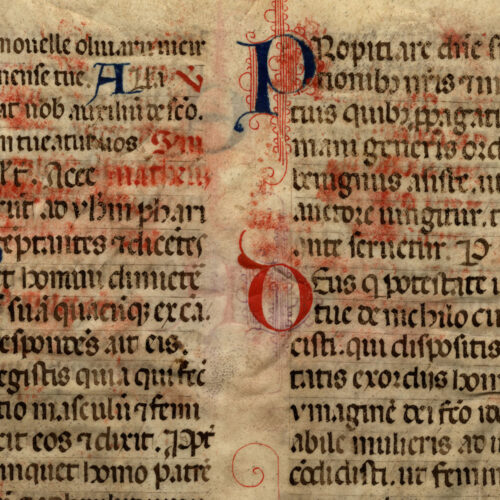 nouelle oliuarum in cir
mense tue All'a V
at nob auxiliū de sc̄o.
n tueatur uos
Mathm̄
rūt ad yhm phari
ceptantes ⁊ dicētes
et homini dimicte
suā quacūq; ex ca.
espondēs ait eis.
egistis quia qui fēc
tio masculū ⁊ femi
cit eos ⁊ dixit. Ppt̄
inquet homo patrē
PRopitiare dn̄e s
tionibꝫ nr̄is ⁊ in
tuis quibꝫ ꝓpagati
mani generis ord
benignus assiste. ut
auctore iungitur. a
ante seruetur. P
DEus q̇ potestate u
tue de nichilo cu
cisti. qui dispositis
tatis exordijs hom
ymaginē dei fc̄o i
abile mulieris ad i
cōdidisti. ut femin